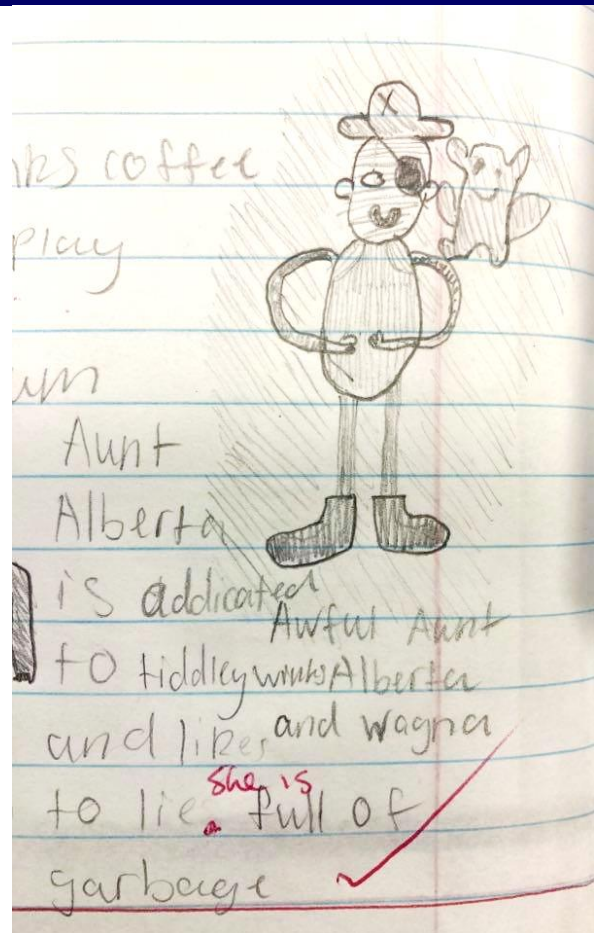 coffee
play
Aunt
Alberta
is addicated
to tiddleywinks
and likes
to lie. she is full of
garbage
Awful Aunt
Alberta
and Wagna